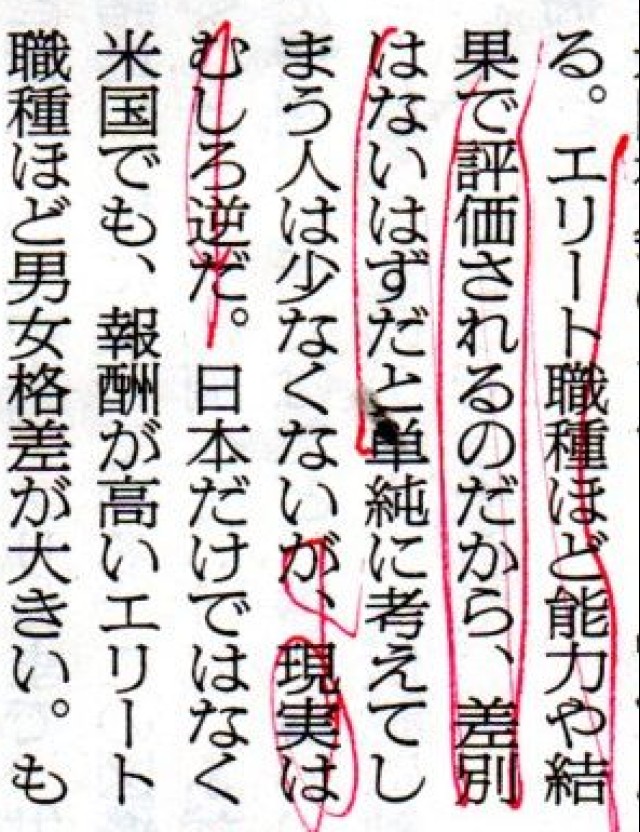 る。エリート職種ほど能力や結
果で評価されるのだから、差別
はないはずだと単純に考えてし
まう人は少なくないが、現実は
むしろ逆だ。日本だけではなく
米国でも、報酬が高いエリート
職種ほど男女格差が大きい。も